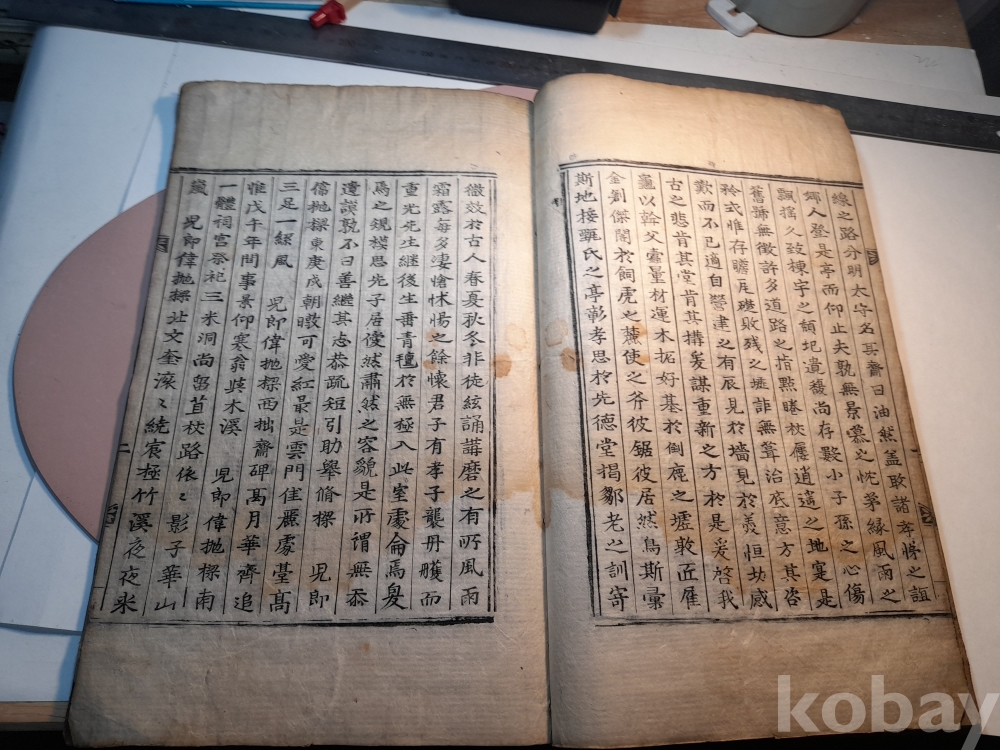 線之路分明太守名其齋曰油然盖取諸孝悌之誼
鄕人登是亭而仰止夫孰無景慕之忱第緣風雨之
飄搖久致棟宇之頹圮遺馥尙存黟小子孫之心傷
舊號無徵許多道路之指點睠玆偃逍遙之地寔是
矜式惟存瞻此礎敗殘之墟詎無葺治底意方其咨
歎而不已適自營建之有辰見於墻見於羹恒切感
古之悲肯其堂肯其搆爰謀重新之方於是爰啓我
龜以幹父蠱量材運木拓好基於倒鹿之墟敦匠雇
金劉傑閣於飼虎之麓使之斧彼鋸彼居然鳥斯翬
斯地接甄氏之亭彰孝思於先德堂揭鄒老之訓寄
徵效於古人春夏秋冬非徒絃誦講磨之有所風雨
霜露每多凄愴怵惕之餘懷君子有孝子襲丹雘而
重光先生繼後生番靑氊於無極入此室處侖焉奐
焉之規模思先子居僾然肅然之容貌是所謂無忝
遺謨孰不曰善繼其志恭疏短引助擧脩樑 兒郞
偉抛樑東庚戌朝暾可愛紅最是雲門佳麗處臺高
三足一絲風 兒郞偉抛樑西拙齋碑高月華齊追
惟戊午年間事景仰寒翁與木溪 兒郞偉抛樑南
一體祠宮祭祀三米洞尙留苜校路依〻影子華山
嵐 兒郞偉抛樑北文奎滾〻繞宸極竹溪夜夜米
一
二
kobay